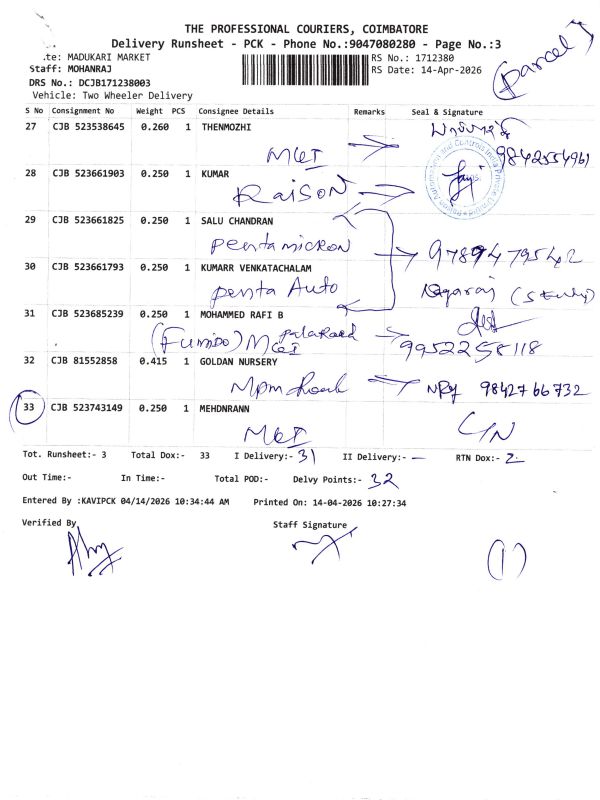 THE PROFESSIONAL COURIERS, COIMBATORE
Delivery Runsheet - PCK - Phone No.:9047080280 - Page No.:3
(Parcel)
te: MADUKARI MARKET
RS No.: 1712380
Staff: MOHANRAJ
RS Date: 14-Apr-2026
DRS No.: DCJB171238003
Vehicle: Two Wheeler Delivery
S No Consignment No Weight PCS Consignee Details Remarks Seal & Signature
27 CJB 523538645 0.260 1 THENMOZHI
9842554961
28 CJB 523661903 0.250 1 KUMAR
Raison
29 CJB 523661825 0.250 1 SALU CHANDRAN
pentamicron 9789479542
30 CJB 523661793 0.250 1 KUMARR VENKATACHALAM
penta Auto Nagaraj
31 CJB 523685239 0.250 1 MOHAMMED RAFI B
9952258118
32 CJB 81552858 0.415 1 GOLDAN NURSERY
Mpm Road 9842766732
33 CJB 523743149 0.250 1 MEHDNRANN
L/N
Tot. Runsheet:- 3 Total Dox:- 33 I Delivery:- 31 II Delivery:- — RTN Dox:- 2
Out Time:- In Time:- Total POD:- Delvy Points:- 32
Entered By :KAVIPCK 04/14/2026 10:34:44 AM Printed On: 14-04-2026 10:27:34
Verified By Staff Signature
(1)